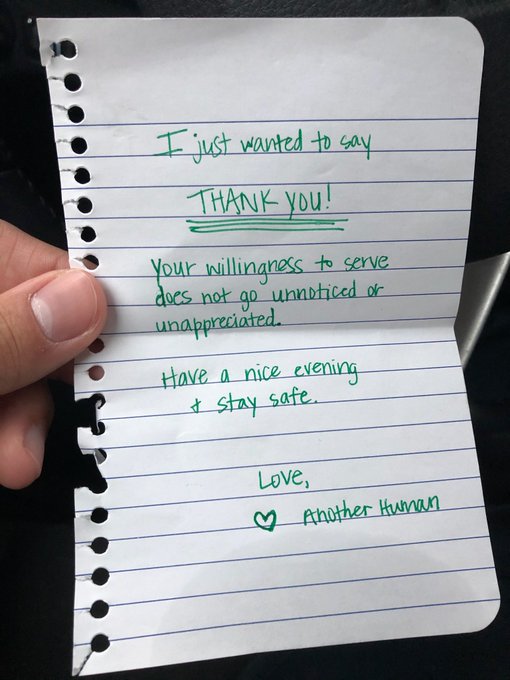 I just wanted to say
THANK YOU!
Your willingness to serve
does not go unnoticed or
unappreciated.
Have a nice evening
& stay safe.
Love,
♡ Another Human